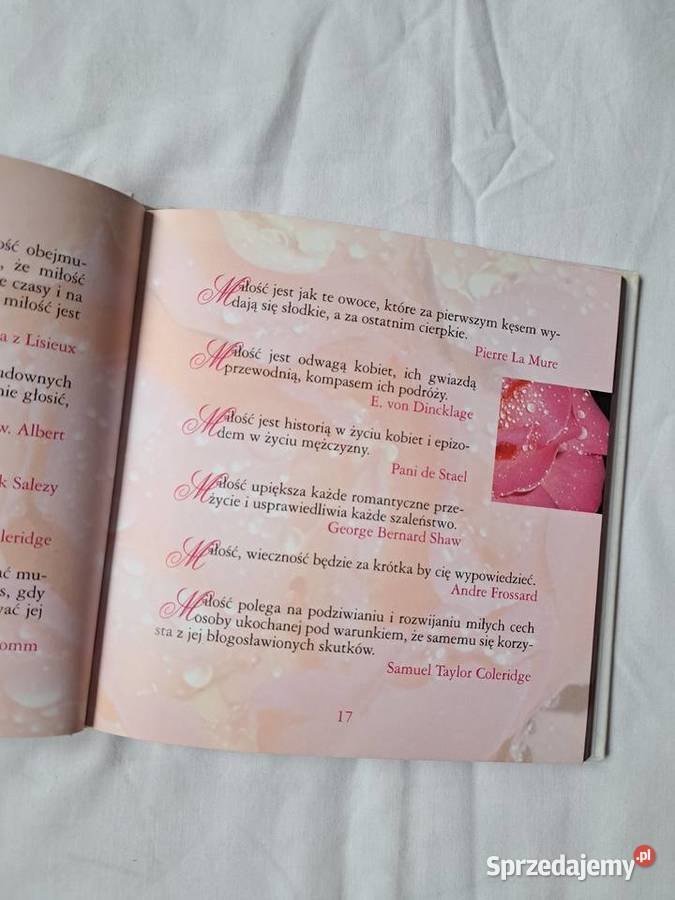 ość obejmu-
że miłość
e czasy i na
miłość jest
a z Lisieux
udownych
nie głosić,
w. Albert
k Salezy
oleridge
ać mu-
s, gdy
wać jej
omm
Miłość jest jak te owoce, które za pierwszym kęsem wy-
dają się słodkie, a za ostatnim cierpkie.
Pierre La Mure
Miłość jest odwagą kobiet, ich gwiazdą
przewodnią, kompasem ich podróży.
E. von Dincklage
Miłość jest historią w życiu kobiet i epizo-
dem w życiu mężczyzny.
Pani de Stael
Miłość upiększa każde romantyczne prze-
życie i usprawiedliwia każde szaleństwo.
George Bernard Shaw
Miłość, wieczność będzie za krótka by cię wypowiedzieć.
Andre Frossard
Miłość polega na podziwianiu i rozwijaniu miłych cech
osoby ukochanej pod warunkiem, że samemu się korzy-
sta z jej błogosławionych skutków.
Samuel Taylor Coleridge
17
Sprzedajemy.pl